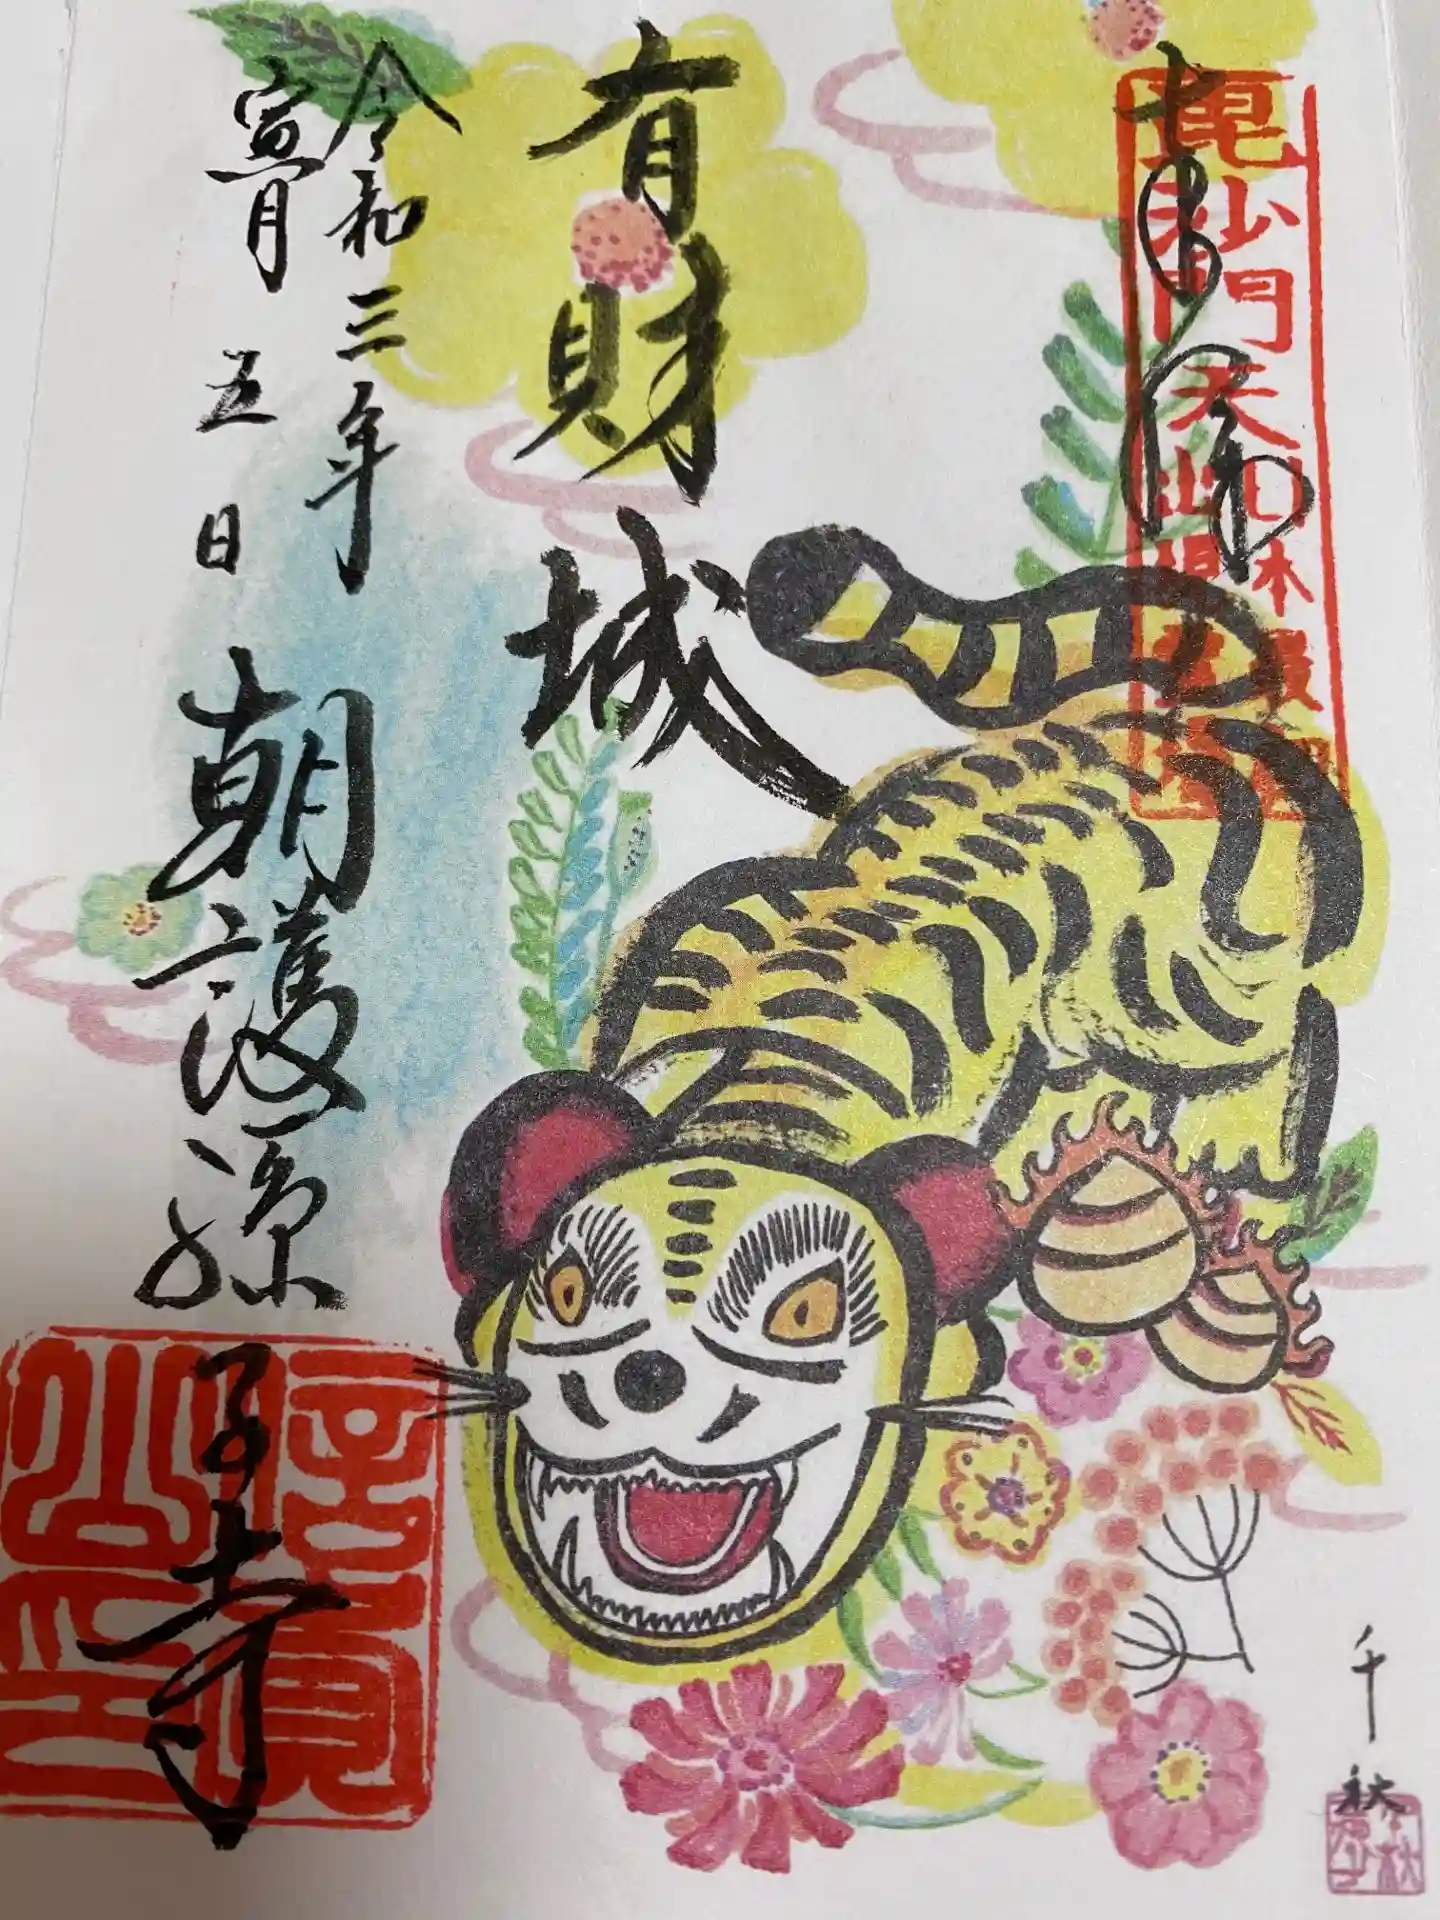 毘沙門天
日本最初
出現霊場
有財城
令和三年
寅月五日
朝護孫子寺
千秋